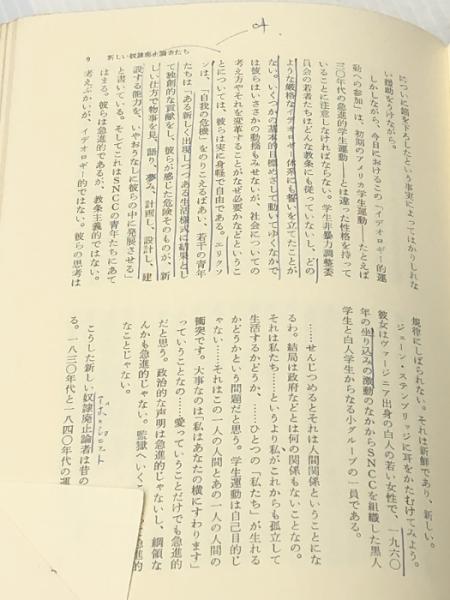 9 新しい奴隷廃止論者たち
についに踏みきらしたという事実によってはかりしれな
い援助をうけながら。
しかしながら、今日におけるこの「イデオロギー的運
動への参加」は、初期のアメリカ学生運動――たとえば
三〇年代の急進的学生運動――とは違った性格を持って
いることに注意しなければならない。学生非暴力調整委
員会の若者たちはどんな教条にも従っていないし、どの
ような厳格なイデオロギー体系にも誓いを立てたことが
ない。いくつかの基本的目標めざして動いてゆくなかで
は彼らはいささかの動揺もみせないが、社会についての
考え方やそれを変革することがなぜ必要かなどというこ
とについては、彼らは実に身軽で自由である。エリクソ
ンは、「自我の危機」をのりこえるばあい、若干の青年
たちは「ある新しく出現しつつある生活様式に結果とし
て独創的な貢献をし、彼らが感じた危険そのものが、新
しい仕方で物事を見、語り、夢み、計画し、設計し、建
設する能力を、いやおうなしに彼らの中に発展させる」
と書いている。そしてこれはSNCCの青年たちにあて
はまる。彼らは急進的であるが、教条主義的ではない。
考えぶかいが、イデオロギー的ではない。彼らの思考は
規律にしばられない。それは新鮮であり、新しい。
ジェーン・ステンブリッジに耳をかたむけてみよう。
彼女はヴァージニア出身の白人の若い女性で、一九六〇
年の坐り込みの激動のなかからSNCCを組織した黒人
学生と白人学生からなる小グループの一員である。
……せんじつめるとそれは人間関係ということにな
るわ。結局は政府などとは何の関係もないことなの。
それは私たち……というより私がこれからも孤立して
生活するかどうか、……ひとつの「私たち」が生れる
かどうかという問題だと思う。学生運動は自己目的じ
ゃない……それはこの一人の人間とあの一人の人間の
衝突です。大事なのは「私はあなたの横にすわります」
っていうことなの……愛っていうことだけでも急進的
だと思う。政治的な声明は急進的じゃないし、綱領な
んかも急進的じゃない。監獄へいく
急進的
なことじゃない。
こうした新しい奴隷廃止論者は昔の
る。一八三〇年代と一八四〇年代の運